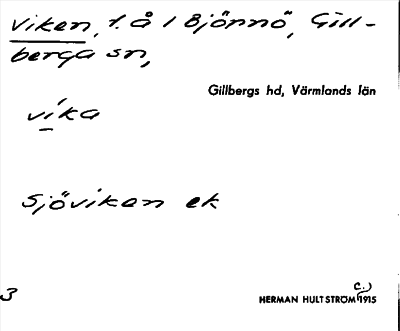 Viken, t. å i Björnö, Gill-
berga sn,
Gillbergs hd, Värmlands län
víka
Sjöviken ek
3
HERMAN HULTSTRÖM 1915